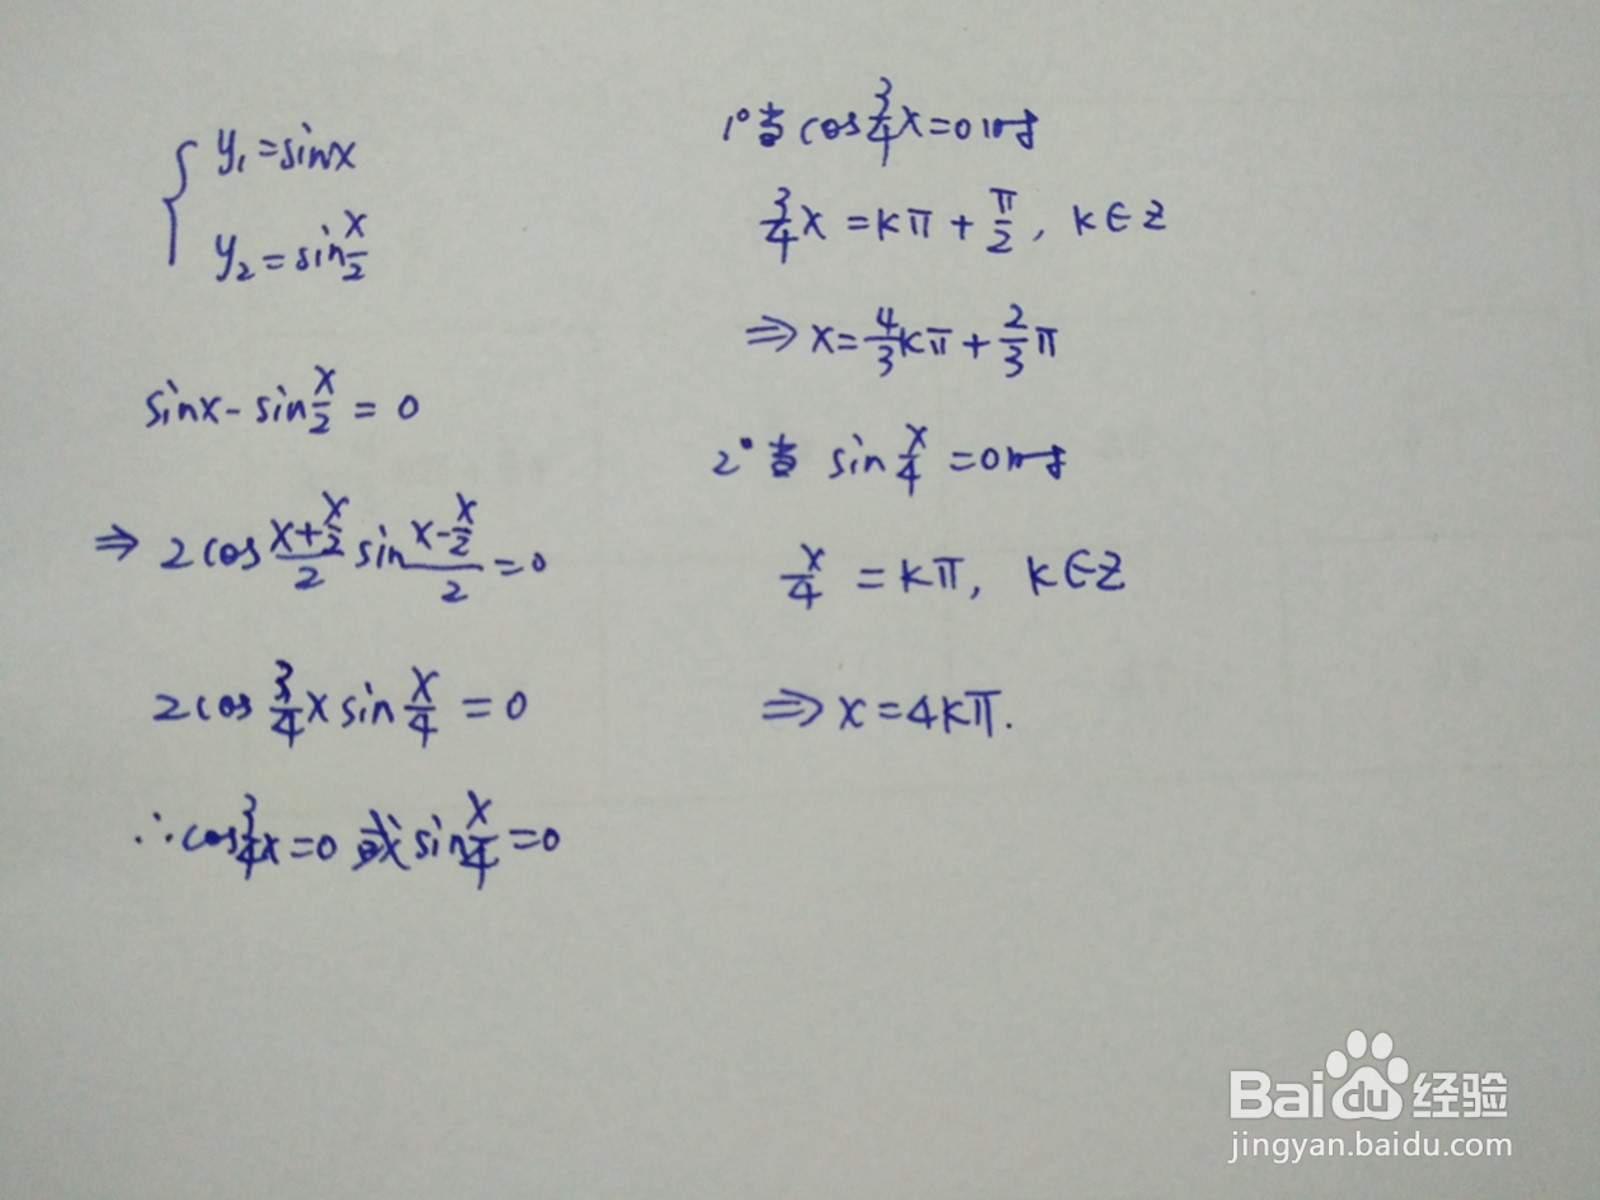 y₁=sinx
y₂=sin x/2
sinx-sin x/2 = 0
⇒ 2cos (x+x/2)/2 sin (x-x/2)/2 =0
2cos 3/4 x sin x/4 = 0
∴cos 3/4 x=0 或 sin x/4 =0
1°当 cos 3/4 x=0时
3/4 x = kπ + π/2, k∈Z
⇒ x= 4/3 kπ + 2/3 π
2°当 sin x/4 =0时
x/4 = kπ, k∈Z
⇒ x=4kπ.
Baidu经验
jingyan.baidu.com